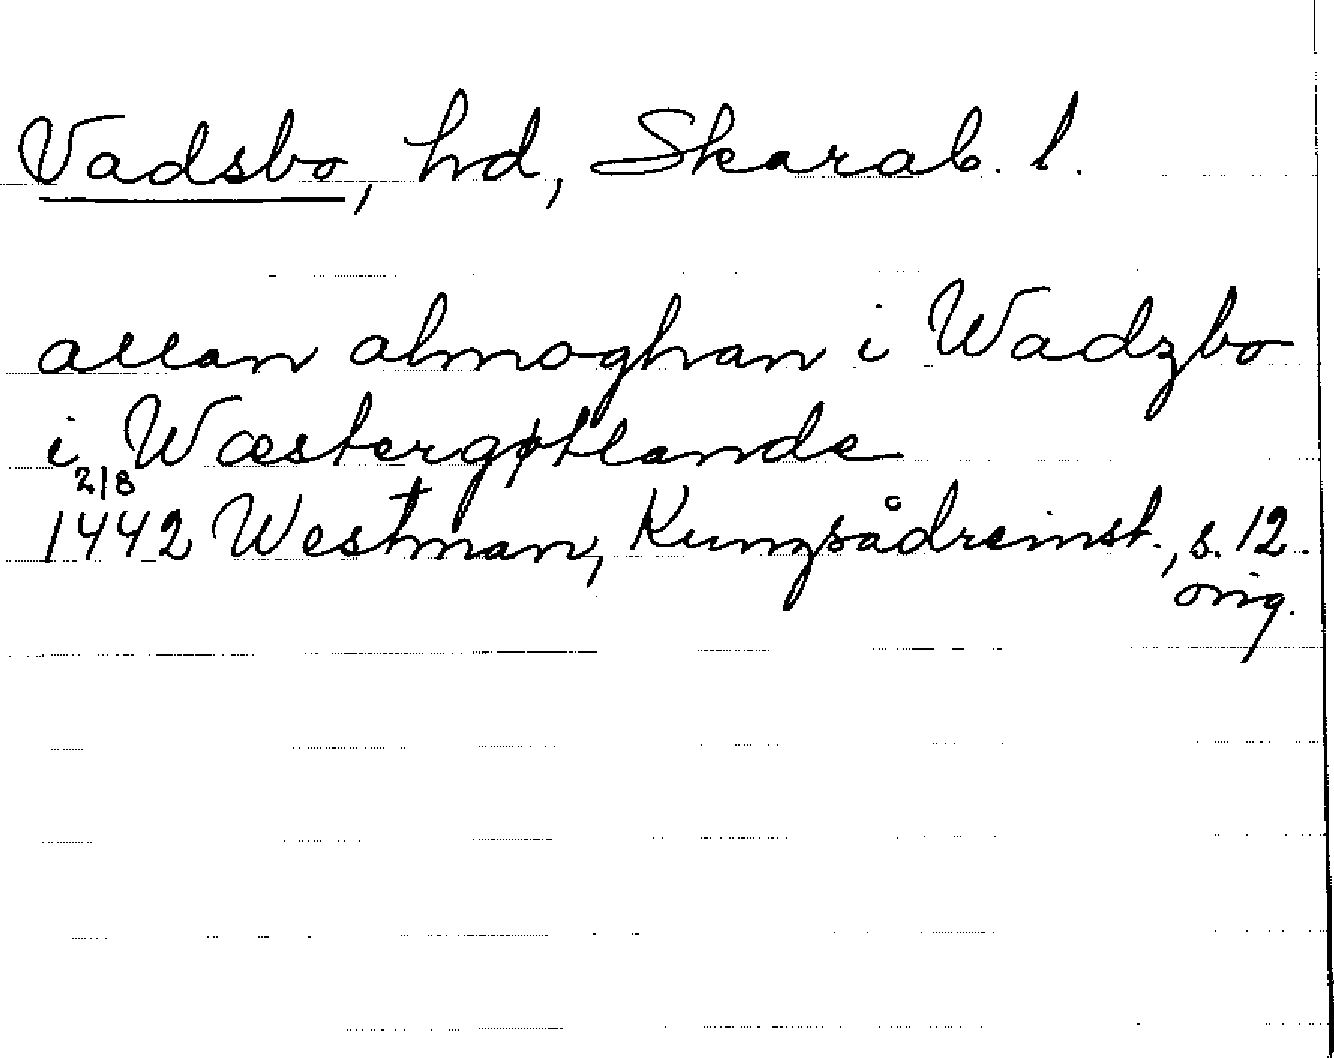 Vadsbo, hd, Skarab. l.
allan almoghan i Wadzbo
i Wæstergøtlande
2/8
1442 Westman, Kungsådreinst., s. 12.
orig.